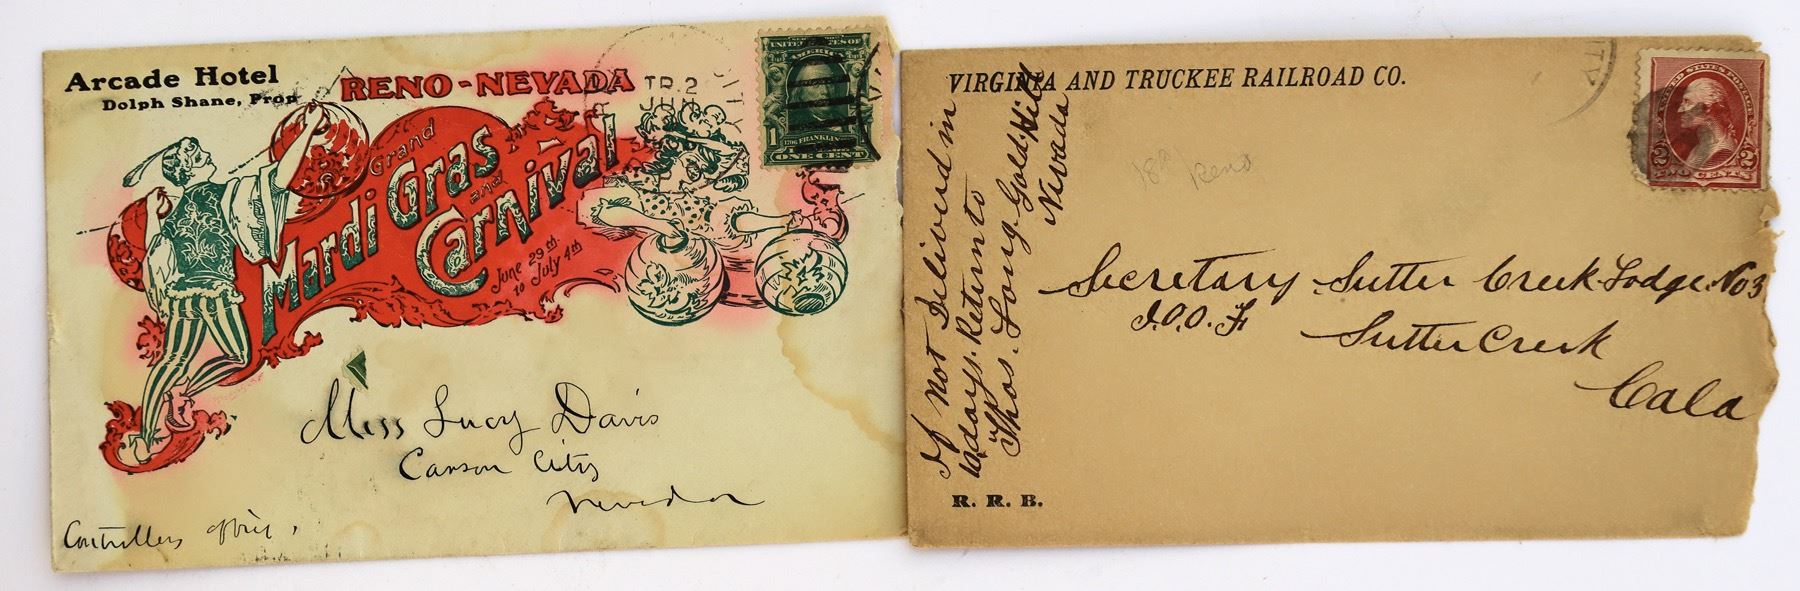 Arcade Hotel
Dolph Shane, Prop
RENO-NEVADA
Grand
Mardi Gras
and
Carnival
June 29th
to July 4th
TR. 2
JUN
UNITED STATES OF
AMERICA
1706 FRANKLIN
1
ONE CENT
Miss Lucy Davis
Carson City
Nevada
Controllers office,
VIRGINIA AND TRUCKEE RAILROAD CO.
If Not Delivered in
10 days. Return to
Thos. Long. Gold Hill
Nevada
Reno
UNITED STATES POSTAGE
2 2
TWO CENTS
Secretary Sutter Creek Lodge No 3
I.O.O.F
Sutter Creek
Cala
R. R. B.